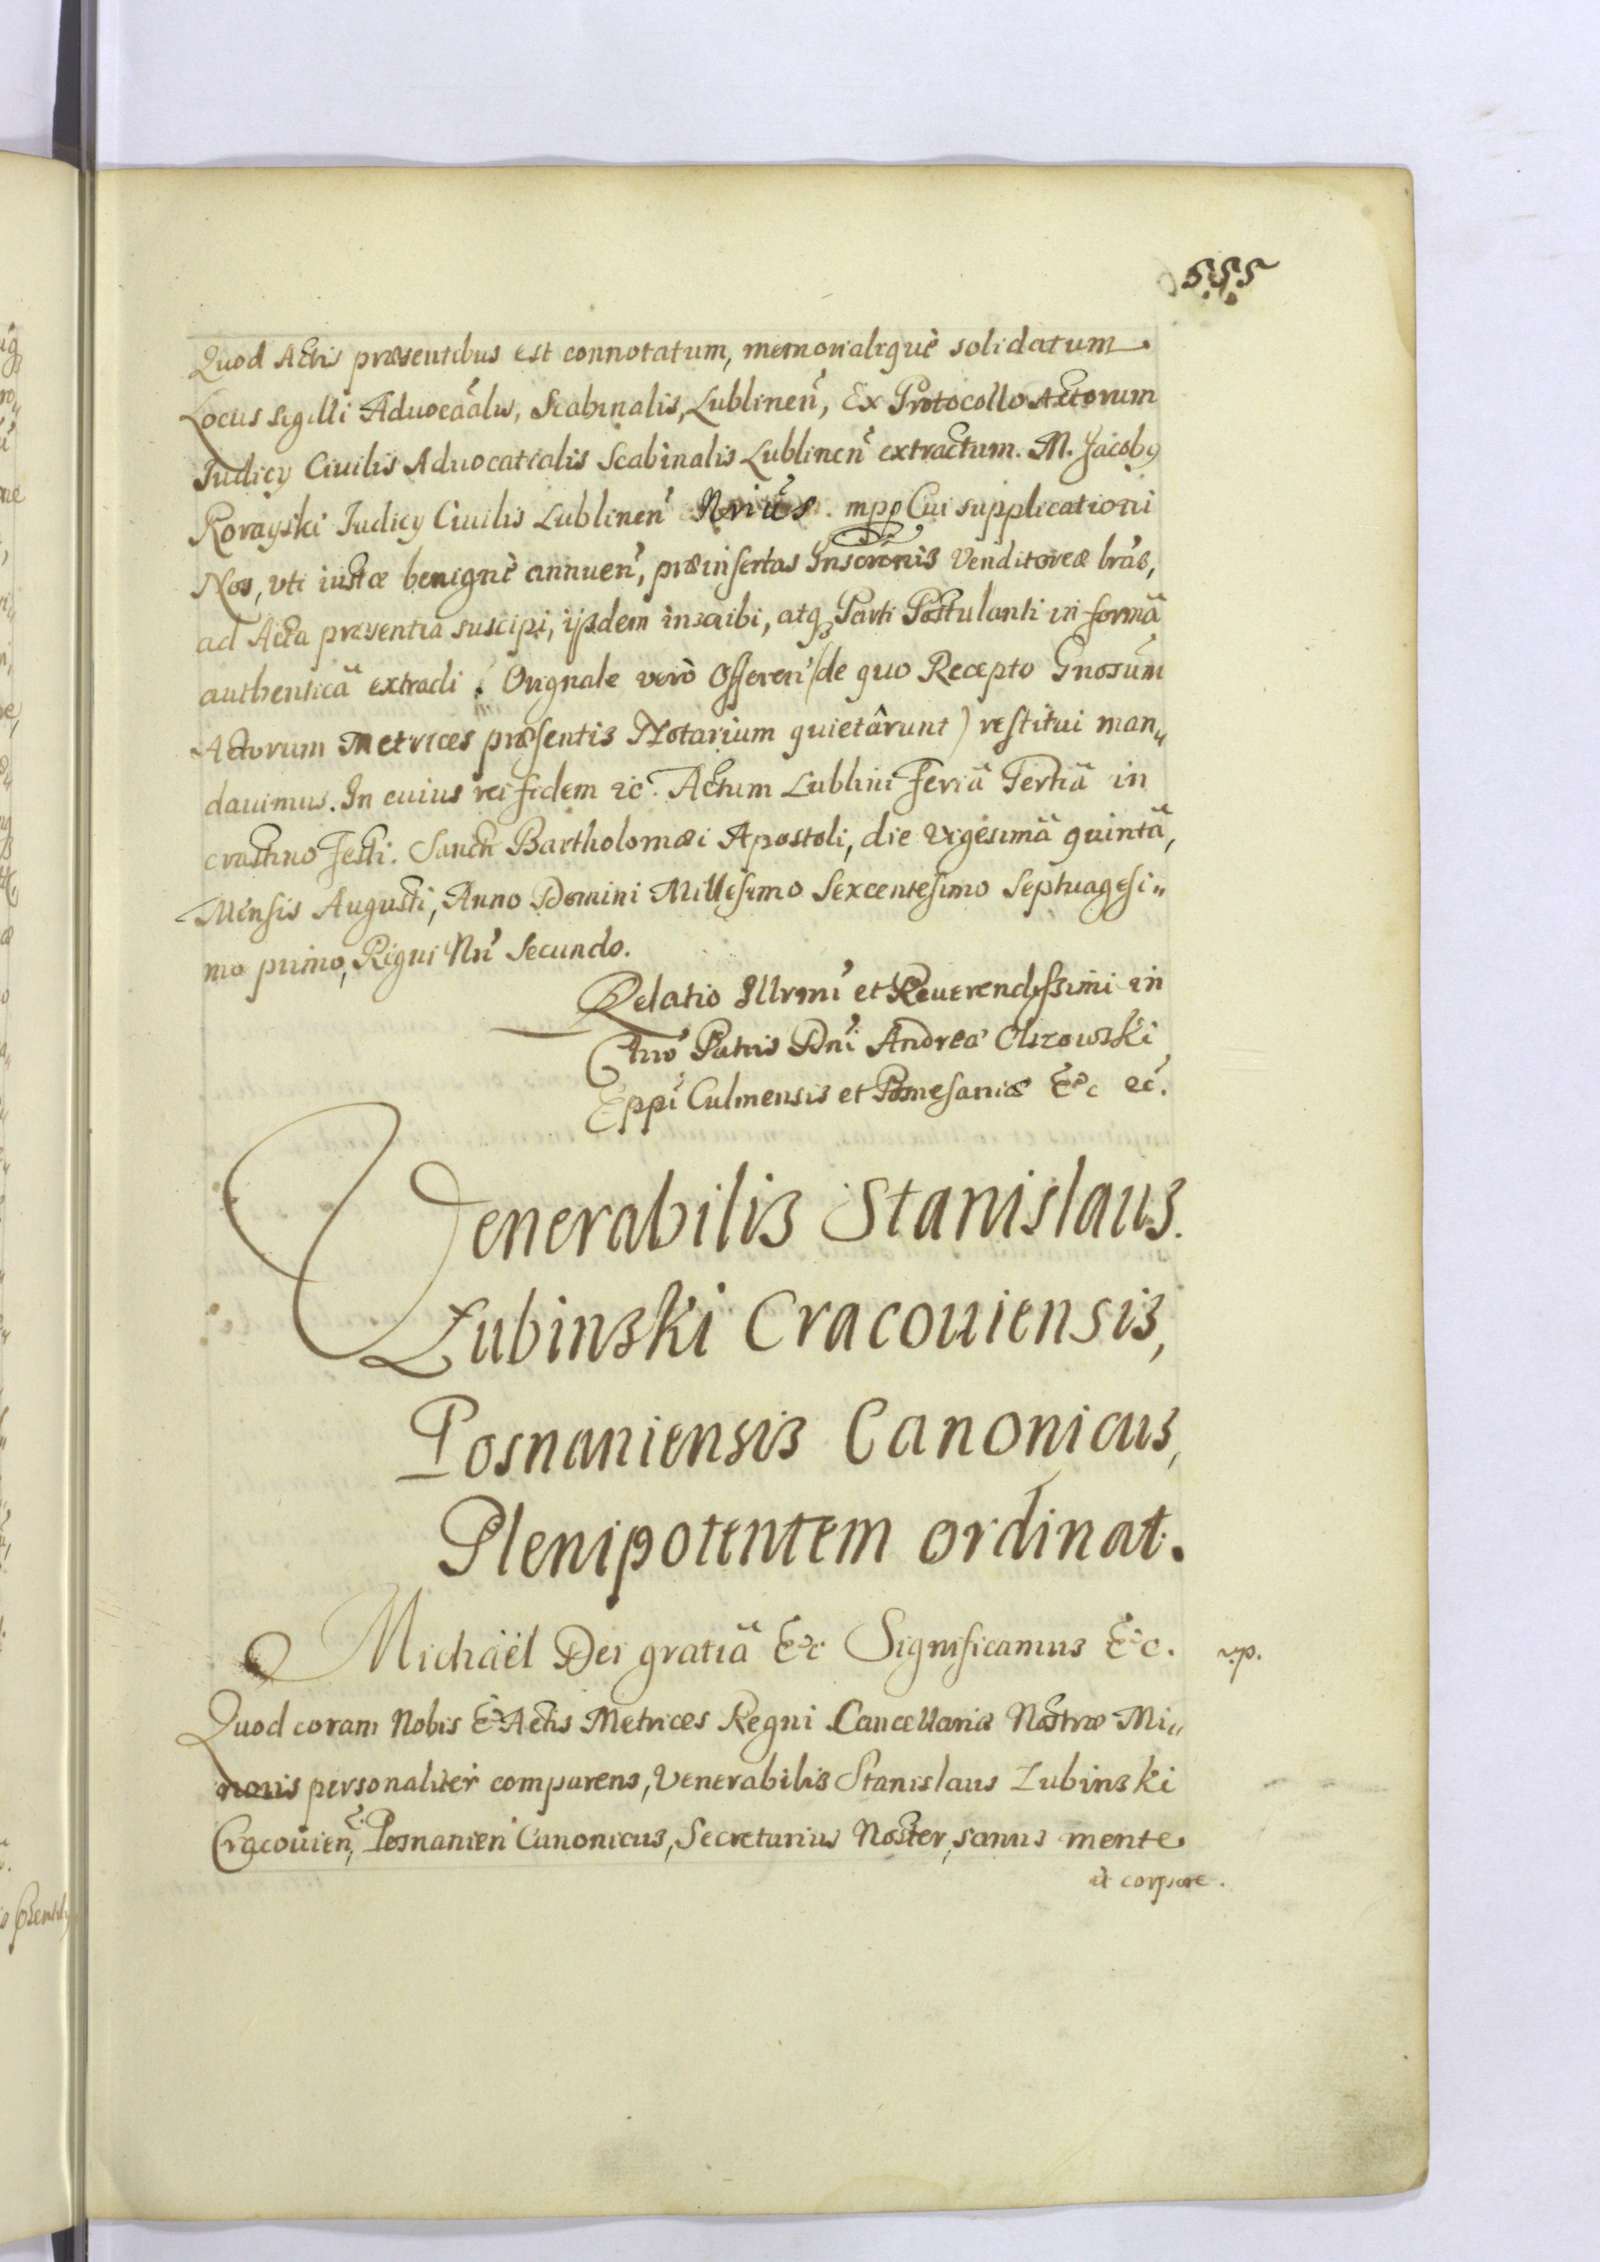 555
Quod Actis præsentibus est connotatum, memorialiquè solidatum.
Locus sigilli Aduocãalis, Scabinalis, Lublinen̄, Ex Protocollo Actorum
Iudicy Ciuilis Aduocatialis Scabinalis Lublinen̄ extractum. M. Jacoby
Rorayski Iudicy Ciuilis Lublinen̄ Nriũs. mpp Cui supplicationi
Nos, vti iustæ benignè annuen̄, præinsertas Inscrõnis Venditoreæ lrãs,
ad Acta præsentia suscipi, ijsdem inscribi, atq₃ Parti Postulanti in formã
authenticã extradi. Originale verò Offeren̄ (de quo Recepto Gnosum̄
Actorum Metrices præsentis Notarium quietârunt) restitui man„
dauimus. In cuius rei fidem &c. Actum Lublini Feriã Tertiã in
crastino Festi. Sancti Bartholomæi Apostoli, die Vigesimã quintã,
Mensis Augusti, Anno Domini Millesimo Sexcentesimo Septuagesi„
mo primo, Regni Nri̅ Secundo.
Relatio Illrmi̅ et Reuerendissimi in
Chro̅ Patris Dni̅ Andreæ Olszowski
Eppi̅ Culmensis et Pomesaniæ &c &c.
Venerabilis Stanislaus
Łubinski Cracouiensis,
Posnaniensis Canonicus,
Plenipotentem ordinat.
Michaël Dei gratiã &c Significamus &c.
v.p.
Quod coram Nobis & Actis Metrices Regni Cancellariæ Nostræ Mi„
noris personaliter comparens, Venerabilis Stanislaus Łubinski
Cracouien̄, Posnanien̄ Canonicus, Secretarius Noster, sanus mente
et corpore.